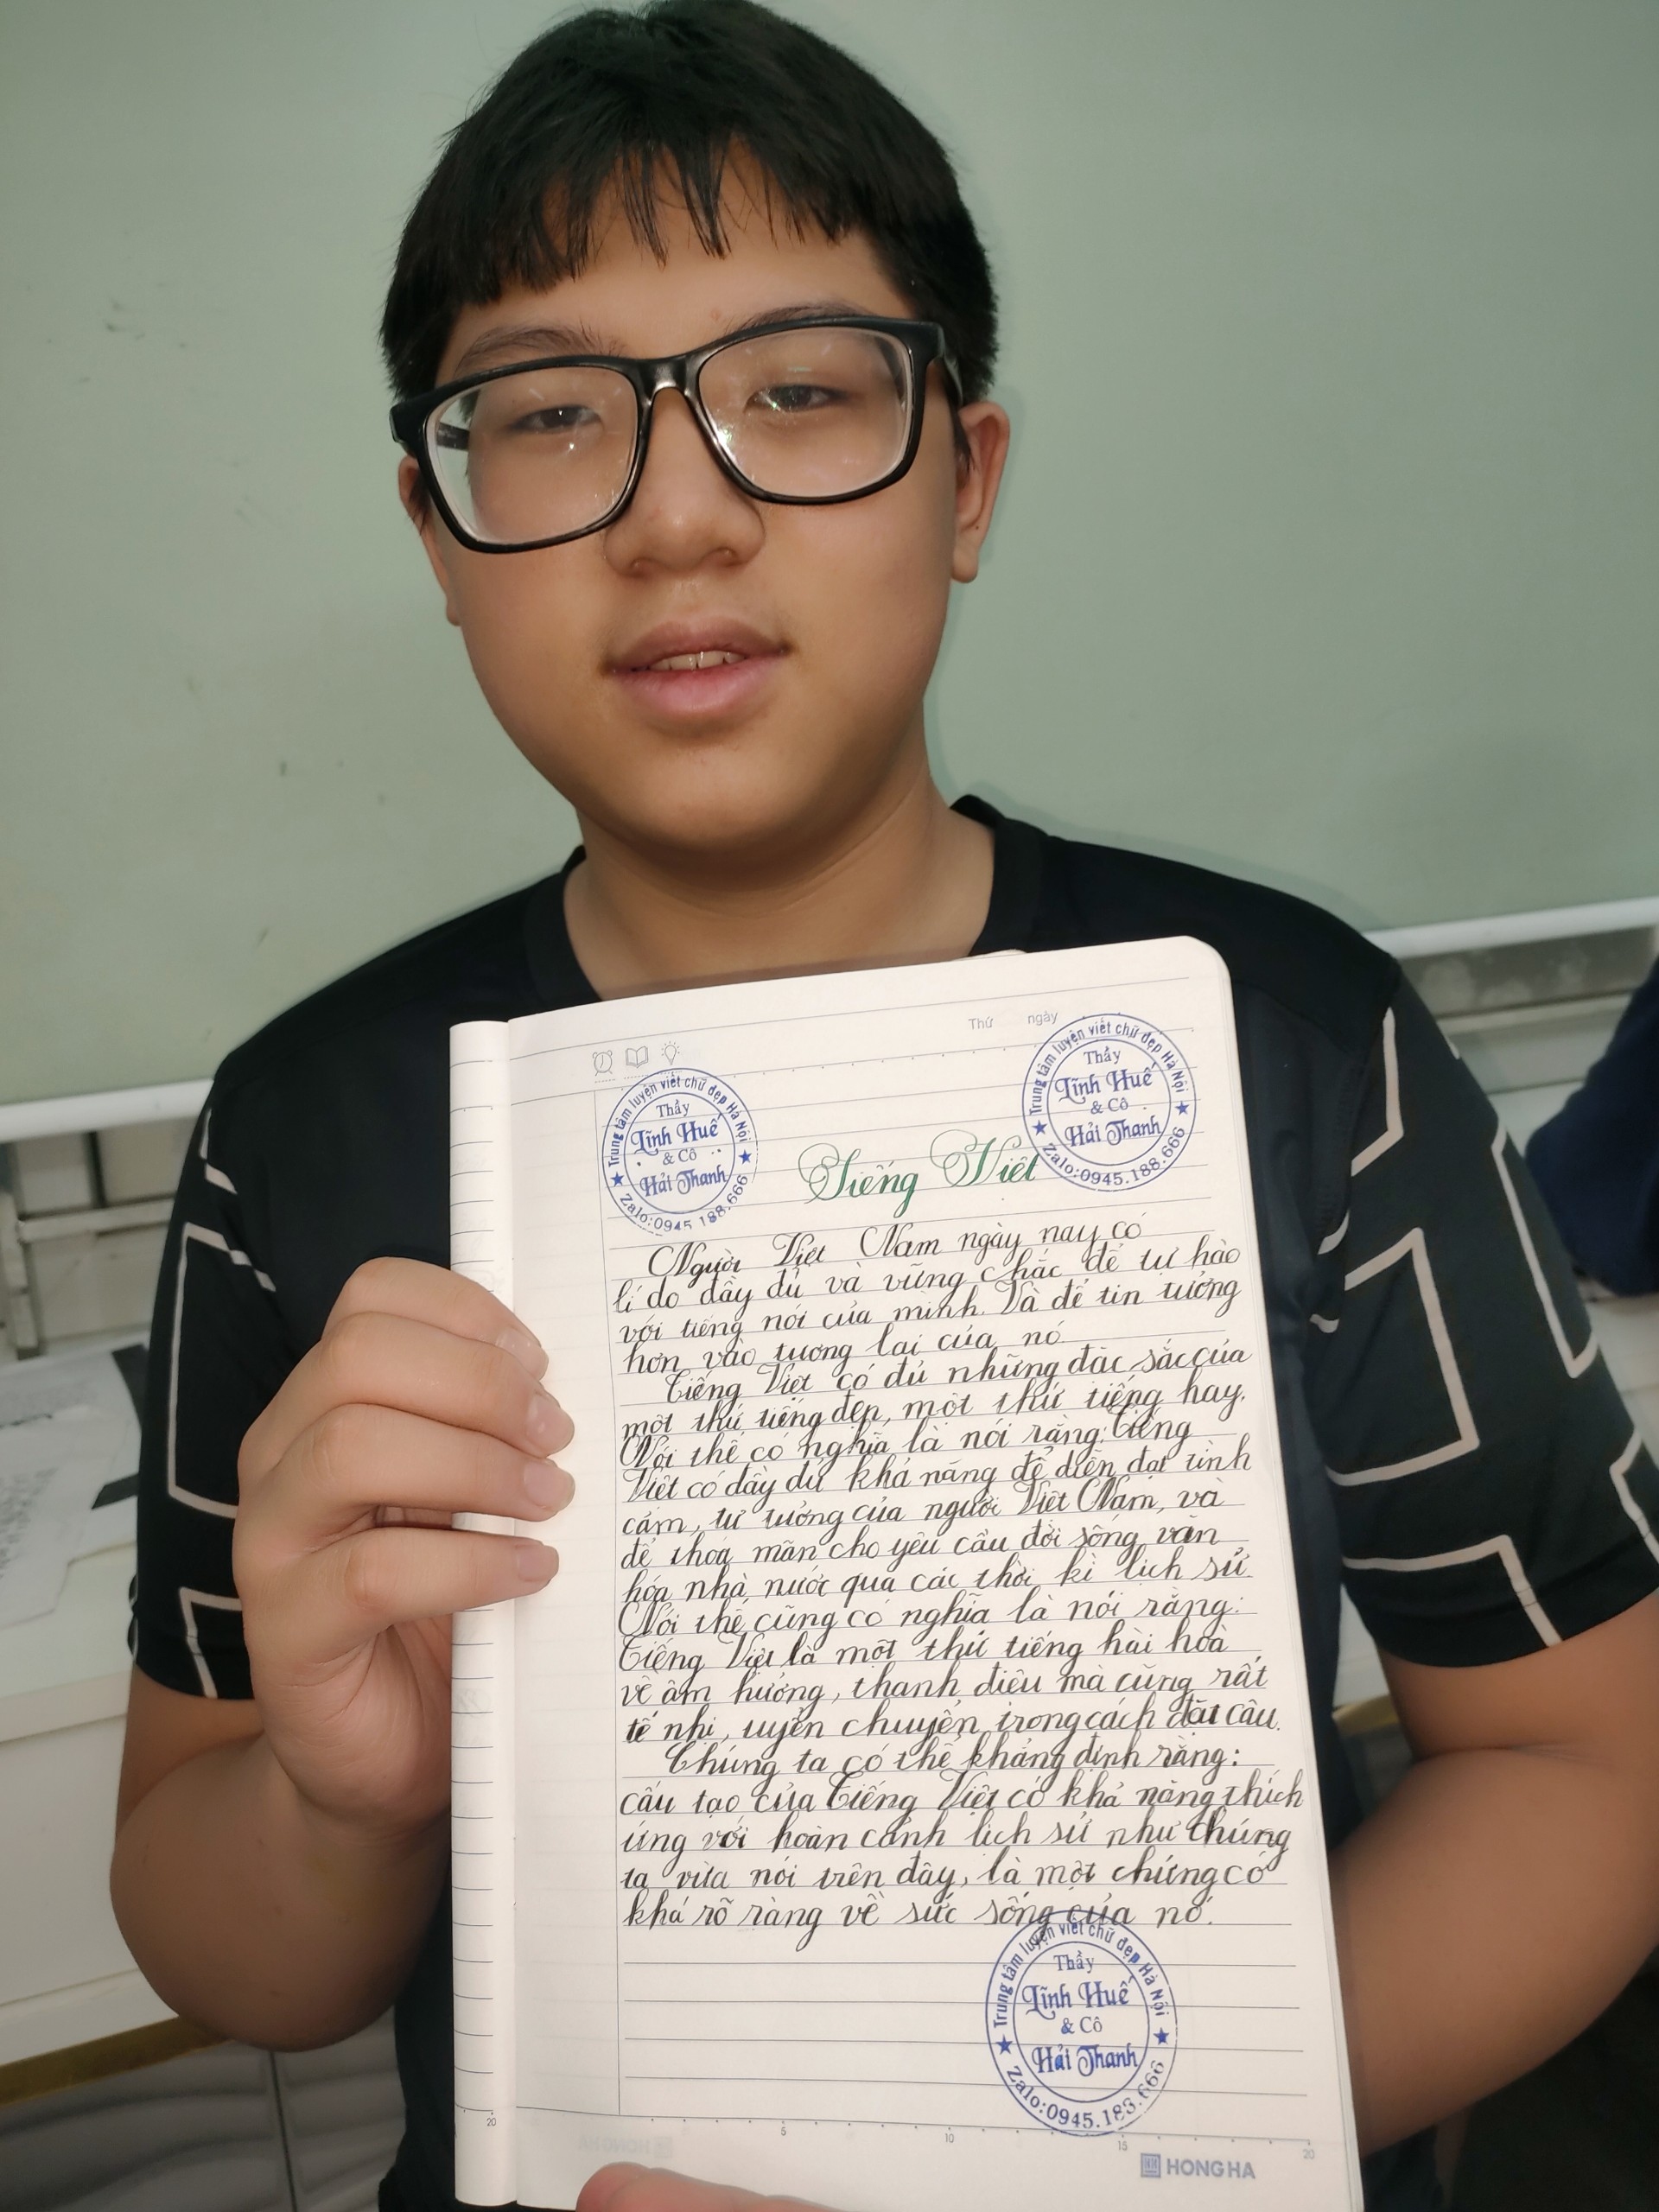 Thứ ngày
Trung tâm luyện viết chữ đẹp Hà Nội
Thầy
Lĩnh Huế
& Cô
Hải Thanh
Zalo:0945.188.666
Trung tâm luyện viết chữ đẹp Hà Nội
Thầy
Lĩnh Huế
& Cô
Hải Thanh
Zalo:0945.188.666
Tiếng Việt
Người Việt Nam ngày nay có
lí do đầy đủ và vững chắc để tự hào
với tiếng nói của mình. Và để tin tưởng
hơn vào tương lai của nó
Tiếng Việt có đủ những đặc sắc của
một thứ tiếng đẹp, một thứ tiếng hay.
Nói thế có nghĩa là nói rằng: Tiếng
Việt có đầy đủ khả năng để diễn đạt tình
cảm, tư tưởng của người Việt Nam, và
để thỏa mãn cho yêu cầu đời sống văn
hóa nhà nước qua các thời kì lịch sử.
Nói thế cũng có nghĩa là nói rằng:
Tiếng Việt là một thứ tiếng hài hoà
về âm hưởng, thanh điệu mà cũng rất
tế nhị, uyển chuyển trong cách đặt câu.
Chúng ta có thể khẳng định rằng:
cấu tạo của Tiếng Việt có khả năng thích
ứng với hoàn cảnh lịch sử như chúng
ta vừa nói trên đây, là một chứng cớ
khá rõ ràng về sức sống của nó.
Trung tâm luyện viết chữ đẹp Hà Nội
Thầy
Lĩnh Huế
& Cô
Hải Thanh
Zalo:0945.188.666
20
5
10
15
20
HONG HA